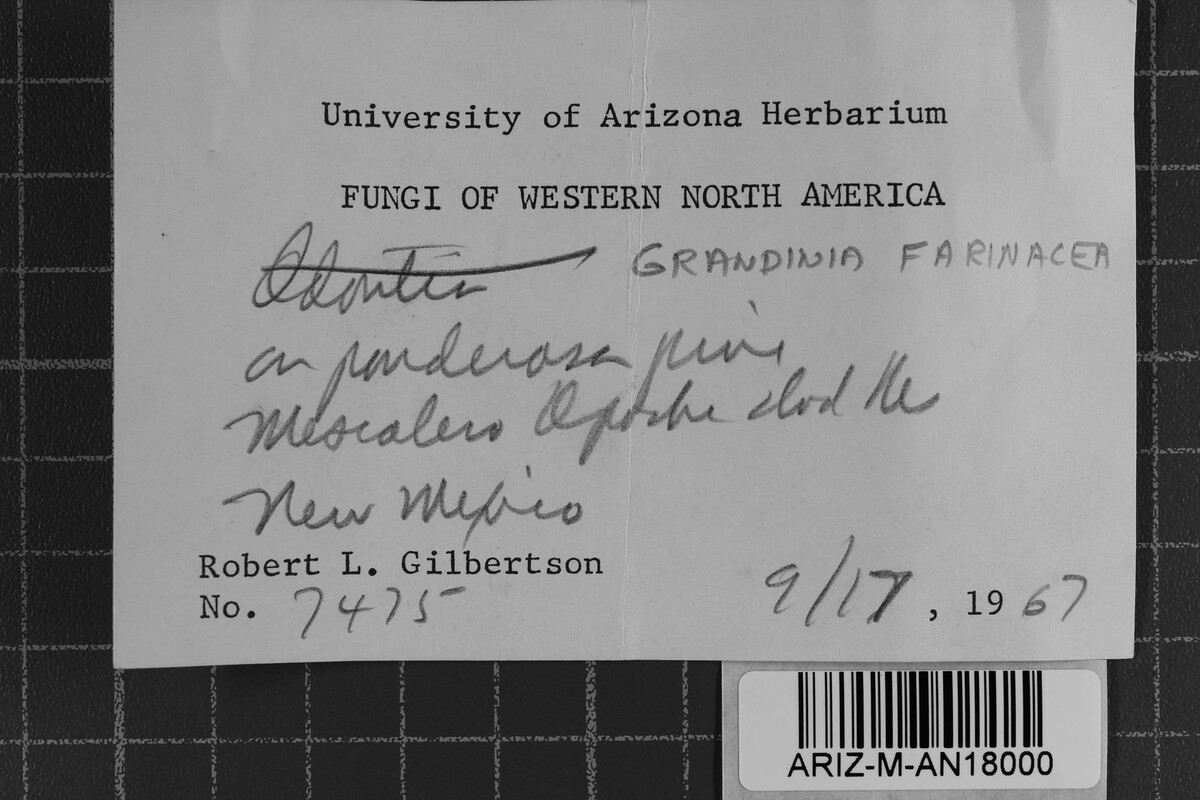 University of Arizona Herbarium
FUNGI OF WESTERN NORTH AMERICA
Odontia GRANDINIA FARINACEA
on ponderosa pine
Mescalero Apache
New Mexico
Robert L. Gilbertson
No. 7475
9/17, 1967
ARIZ-M-AN18000